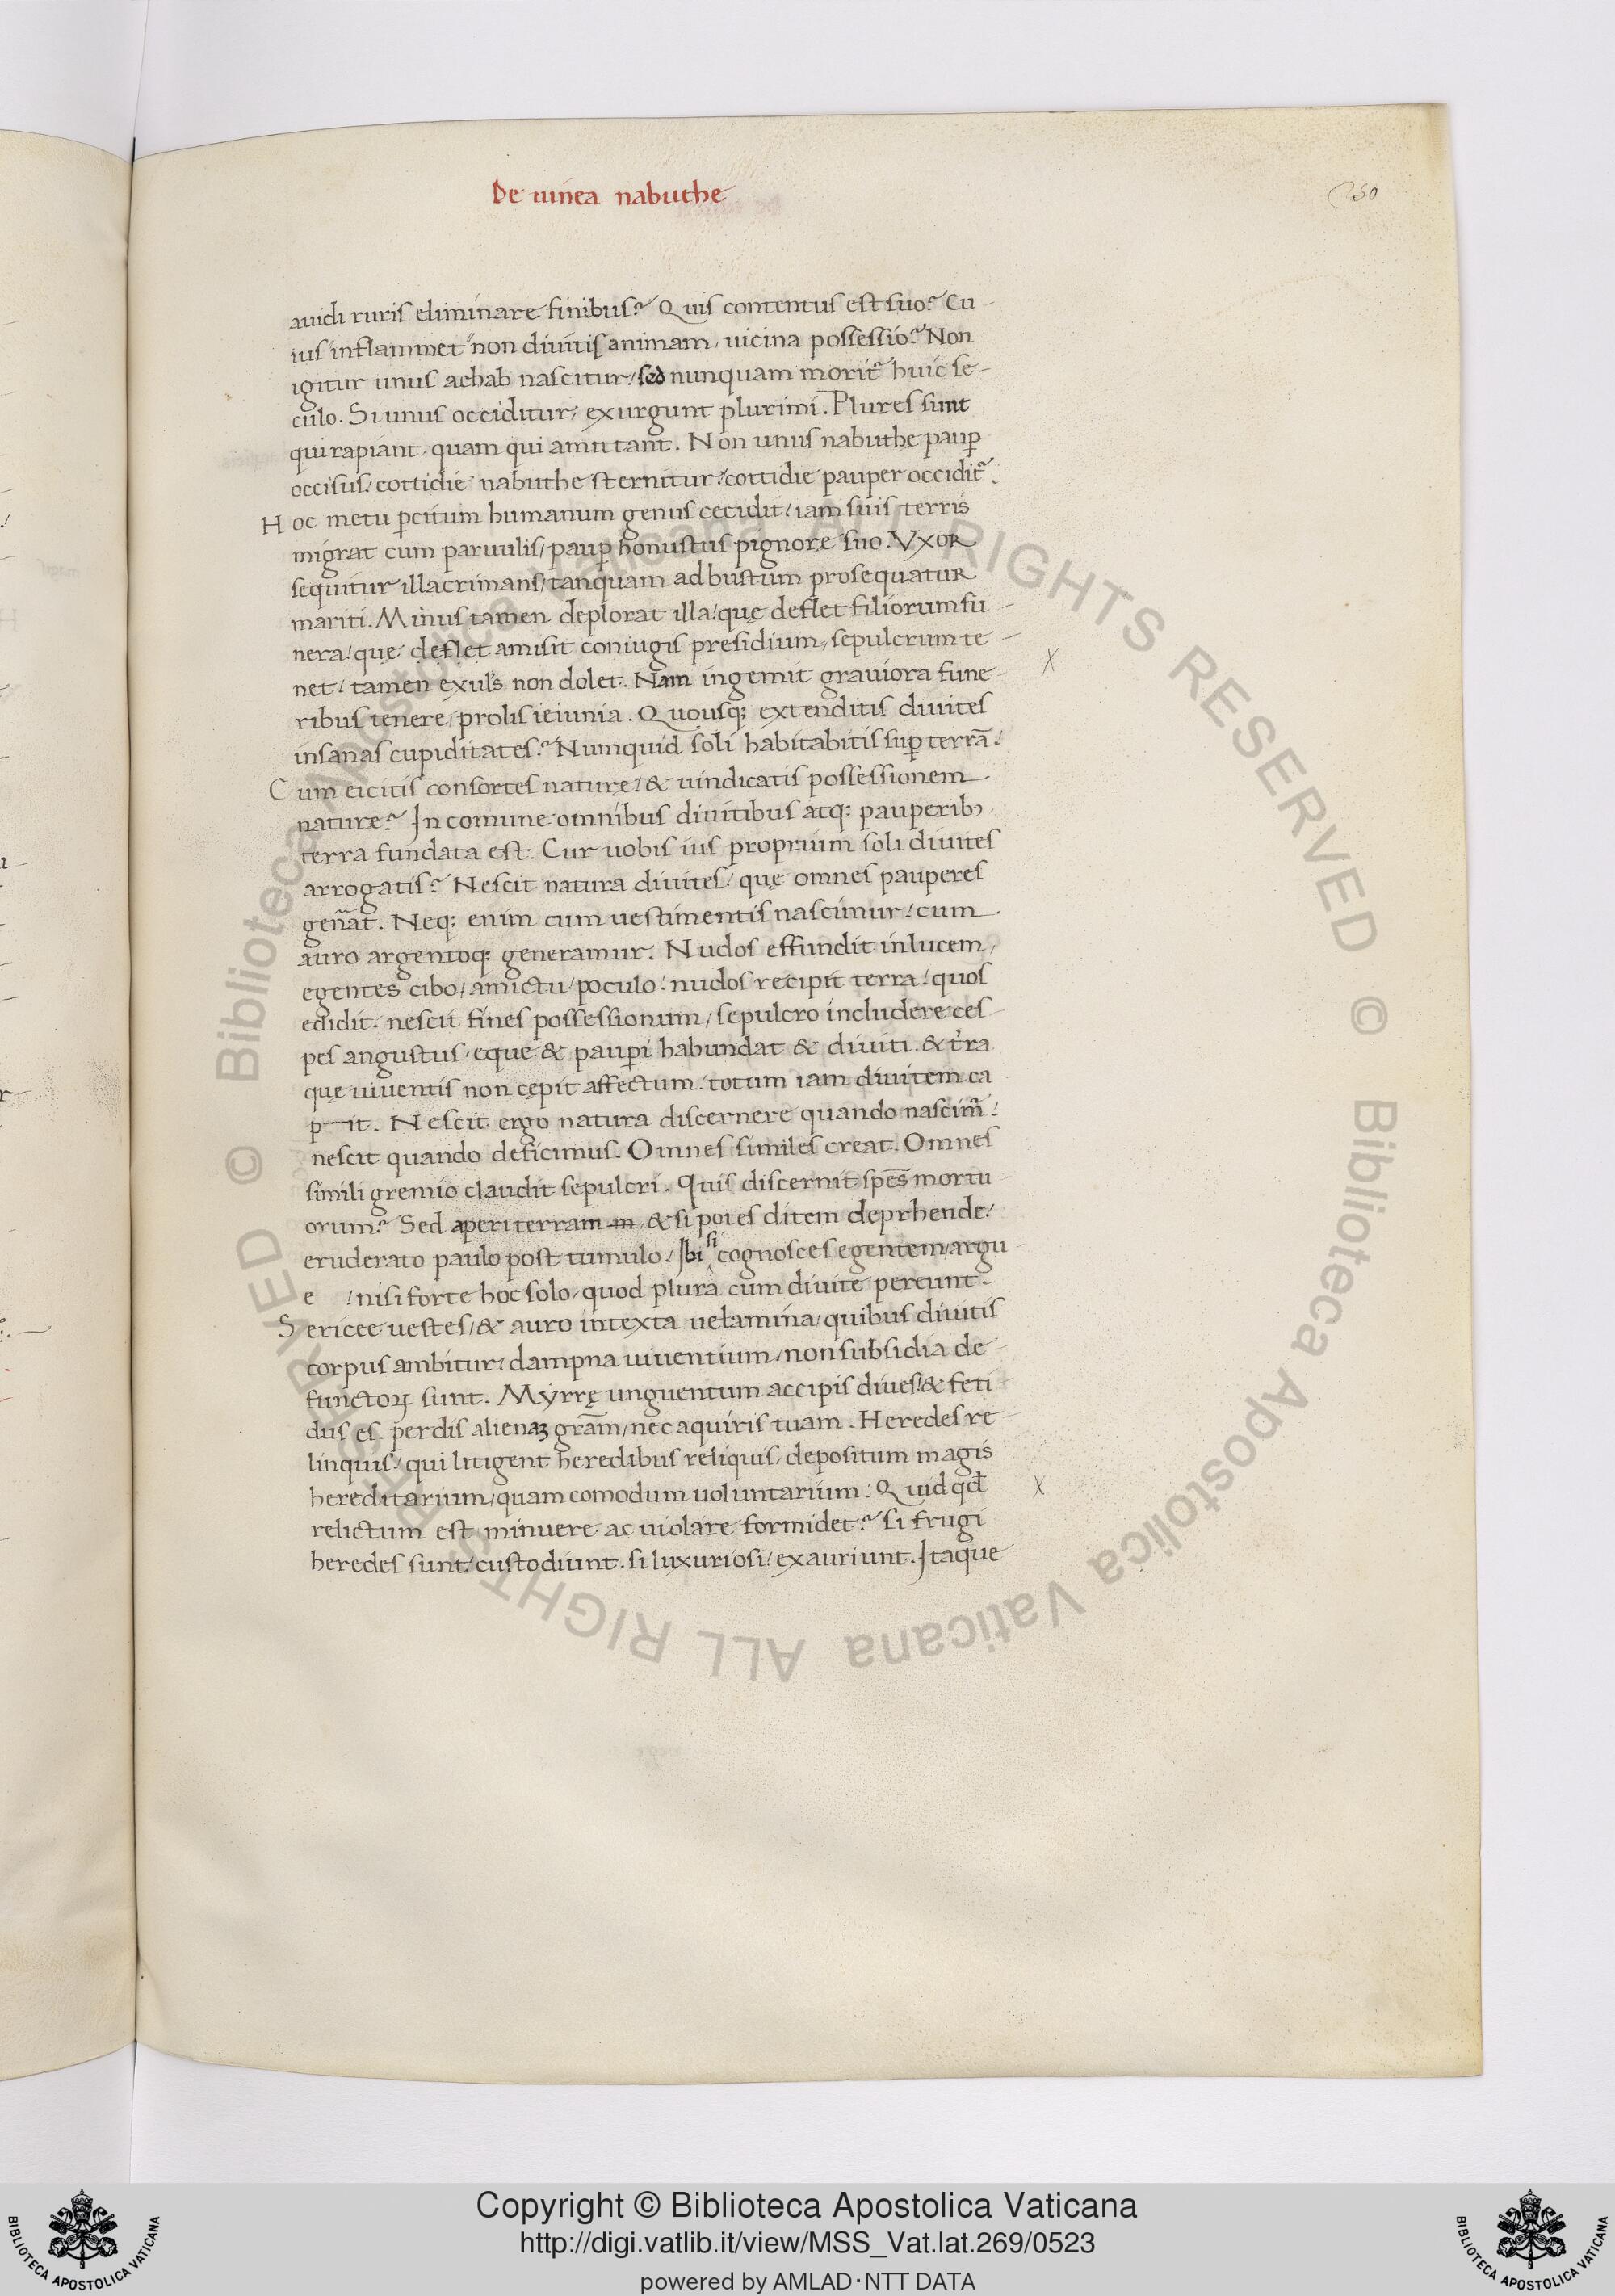 De uinea nabuthe
250
auidi ruris eliminare finibus? Quis contentus est suo? Cu
ius inflammet non diuitis animam, uicina possessio? Non
igitur unus achab nascitur / sed nunquam morit᷑ huic se-
culo. Si unus occiditur, exurgunt plurimi. Plures sunt
qui rapiant, quam qui amittant. Non unus nabuthę paup̲
occisus. cottidie nabuthe sternitur: cottidie pauper occidit᷑.
Hoc metu p̲citum humanum genus cecidit / iam suis terris
migrat cum paruulis / paup̲ honustus pignorę suo. Vxor
sequitur illacrimans / tanquam ad bustum prosequatur
mariti. Minus tamen deplorat illa / quę deflet filiorum fu-
nera / quę deflet amisit coniugis presidium, sepulcrum te-
net / tamen exuls non dolet. Nam ingemit grauiora fune-
ribus tenere / prolis ieiunia. Quousq; extenditis diuites
insanas cupiditates? Numquid soli habitabitis sup̲ terrā?
Cum eicitis consortes naturę / & uindicatis possessionem
naturę? In comune omnibus diuitibus atq; pauperibꝫ
terra fundata est. Cur uobis ius proprium soli diuites
arrogatis? Nescit natura diuites / quę omnes pauperes
gen̄at. Neq; enim cum uestimentis nascimur / cum
auro argentoq; generamur. Nudos effundit in lucem,
egentes cibo / amictu / poculo / nudos recipit terra / quos
edidit. nescit fines possessionum / sepulcro includere. ces-
pes angustus, eque & paup̲i habundat & diuiti. & t̓ra
quę uiuentis non cępit affectum. totum iam diuitem ca
p it. Nescit ergo natura discernere quando nascim᷑:
nescit quando deficimus. Omnes similes creat. Omnes
simili gremio claudit sepulcri. Quis discernit spēs mortu-
orum? Sed aperi terram & si potes ditem deprhende /
eruderato paulo post tumulo / Ibi si cognosces egentem / argu-
e / nisi forte hoc solo, quod plura cum diuite pereunt.
Sericee uestes / & auro intexta uelamina / quibus diuitis
corpus ambitur / dampna uiuentium / non subsidia de-
functoꝝ sunt. Myrrę unguentum accipis diues / & feti
dus es. perdis alienaꝫ grām / nec aquiris tuam. Heredes re
linquis / qui litigent heredibus reliquis, depositum magis
hereditarium / quam comodum uoluntarium. Quid qd̄
relictum est minuere ac uiolare formidet? si frugi
heredes sunt / custodiunt. si luxuriosi / exauriunt. Itaque
X
X
Copyright © Biblioteca Apostolica Vaticana
http://digi.vatlib.it/view/MSS_Vat.lat.269/0523
powered by AMLAD·NTT DATA
BIBLIOTECA APOSTOLICA VATICANA
BIBLIOTECA APOSTOLICA VATICANA
© Biblioteca Apostolica Vaticana ALL RIGHTS RESERVED © Biblioteca Apostolica Vaticana ALL RIGHTS RESERVED